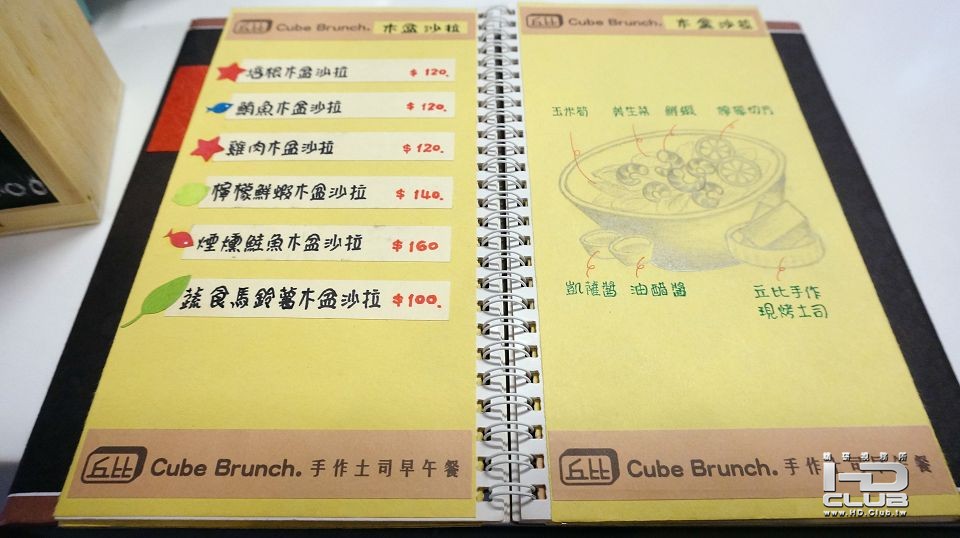 丘比 Cube Brunch. 木盆沙拉
培根木盆沙拉 $120.
鮪魚木盆沙拉 $120.
雞肉木盆沙拉 $120.
檸檬鮮蝦木盆沙拉 $140.
煙燻鮭魚木盆沙拉 $160
蔬食馬鈴薯木盆沙拉 $100.
丘比 Cube Brunch. 手作土司早午餐
丘比 Cube Brunch. 木盆沙拉
玉米筍 養生菜 鮮蝦 檸檬切片
凱薩醬 油醋醬 丘比手作
現烤土司
丘比 Cube Brunch. 手作土司早午餐
00
HD
CLUB
www.HD.Club.tw